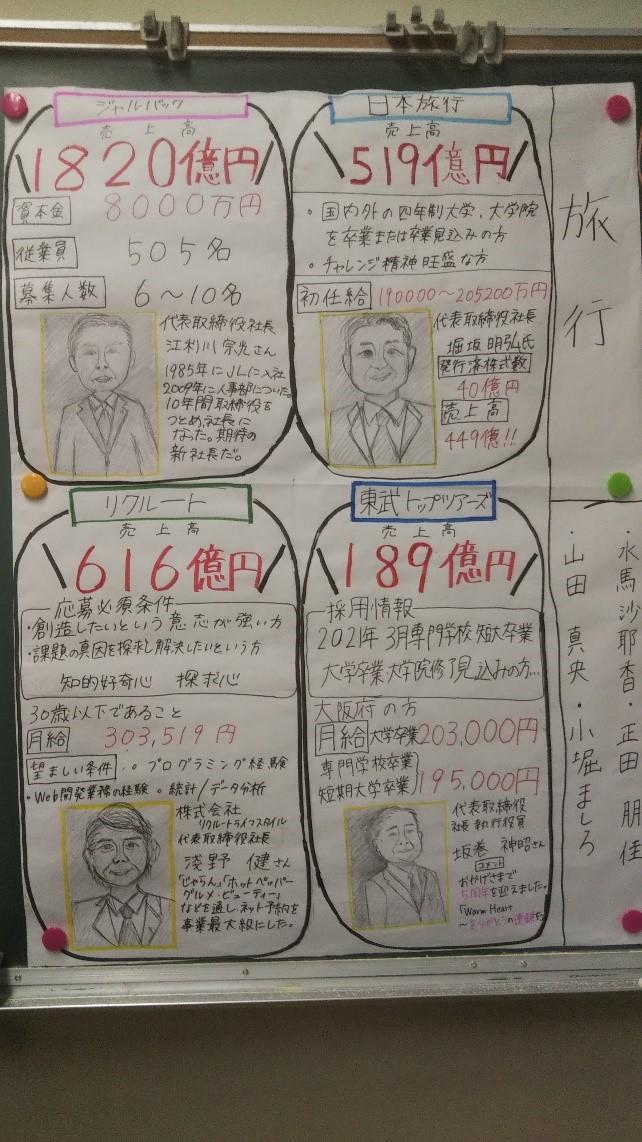 ジャルパック
売上高
1820億円
資本金 8000万円
従業員 505名
募集人数 6~10名
代表取締役社長
江利川宗光さん
1985年にJLに入社
2009年に人事部についた。
10年間取締役を
つとめ、社長に
なった。期待の
新社長だ。
日本旅行
売上高
519億円
・国内外の四年制大学、大学院
を卒業または卒業見込みの方
・チャレンジ精神旺盛な方
初任給 190000~205200万円
代表取締役社長
堀坂明弘氏
発行済株式数
40億円
売上高
449億!!
旅行
リクルート
売上高
616億円
応募必須条件
・創造したいという意志が強い方
・課題の真因を探求し解決したいという方
知的好奇心 探求心
30歳以下であること
月給 303,519円
望ましい条件 ・プログラミング経験
・Web開発業務の経験 ・統計/データ分析
株式会社
リクルートライフスタイル
代表取締役社長
淺野 健さん
「じゃらん」「ホットペッパー
グルメ・ビューティー」
などを通し、ネット予約を
事業最大級にした。
東武トップツアーズ
売上高
189億円
採用情報
2021年3月専門学校 短大卒業
大学卒業・大学院修了見込みの方…
大阪府の方
月給 大学卒業 203,000円
専門学校卒業
短期大学卒業 195,000円
代表取締役
社長執行役員
坂巻 神昭さん
コメント
おかげさまで
5周年を迎えました。
「Warm Heart
~ありがとうの連鎖を
・水馬沙耶香・正田 朋佳
・山田 真央・小堀ましろ